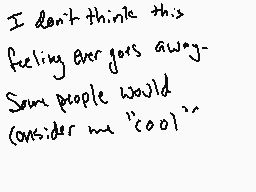 I don't think this
feeling ever goes away.
Some people would
consider me "cool"